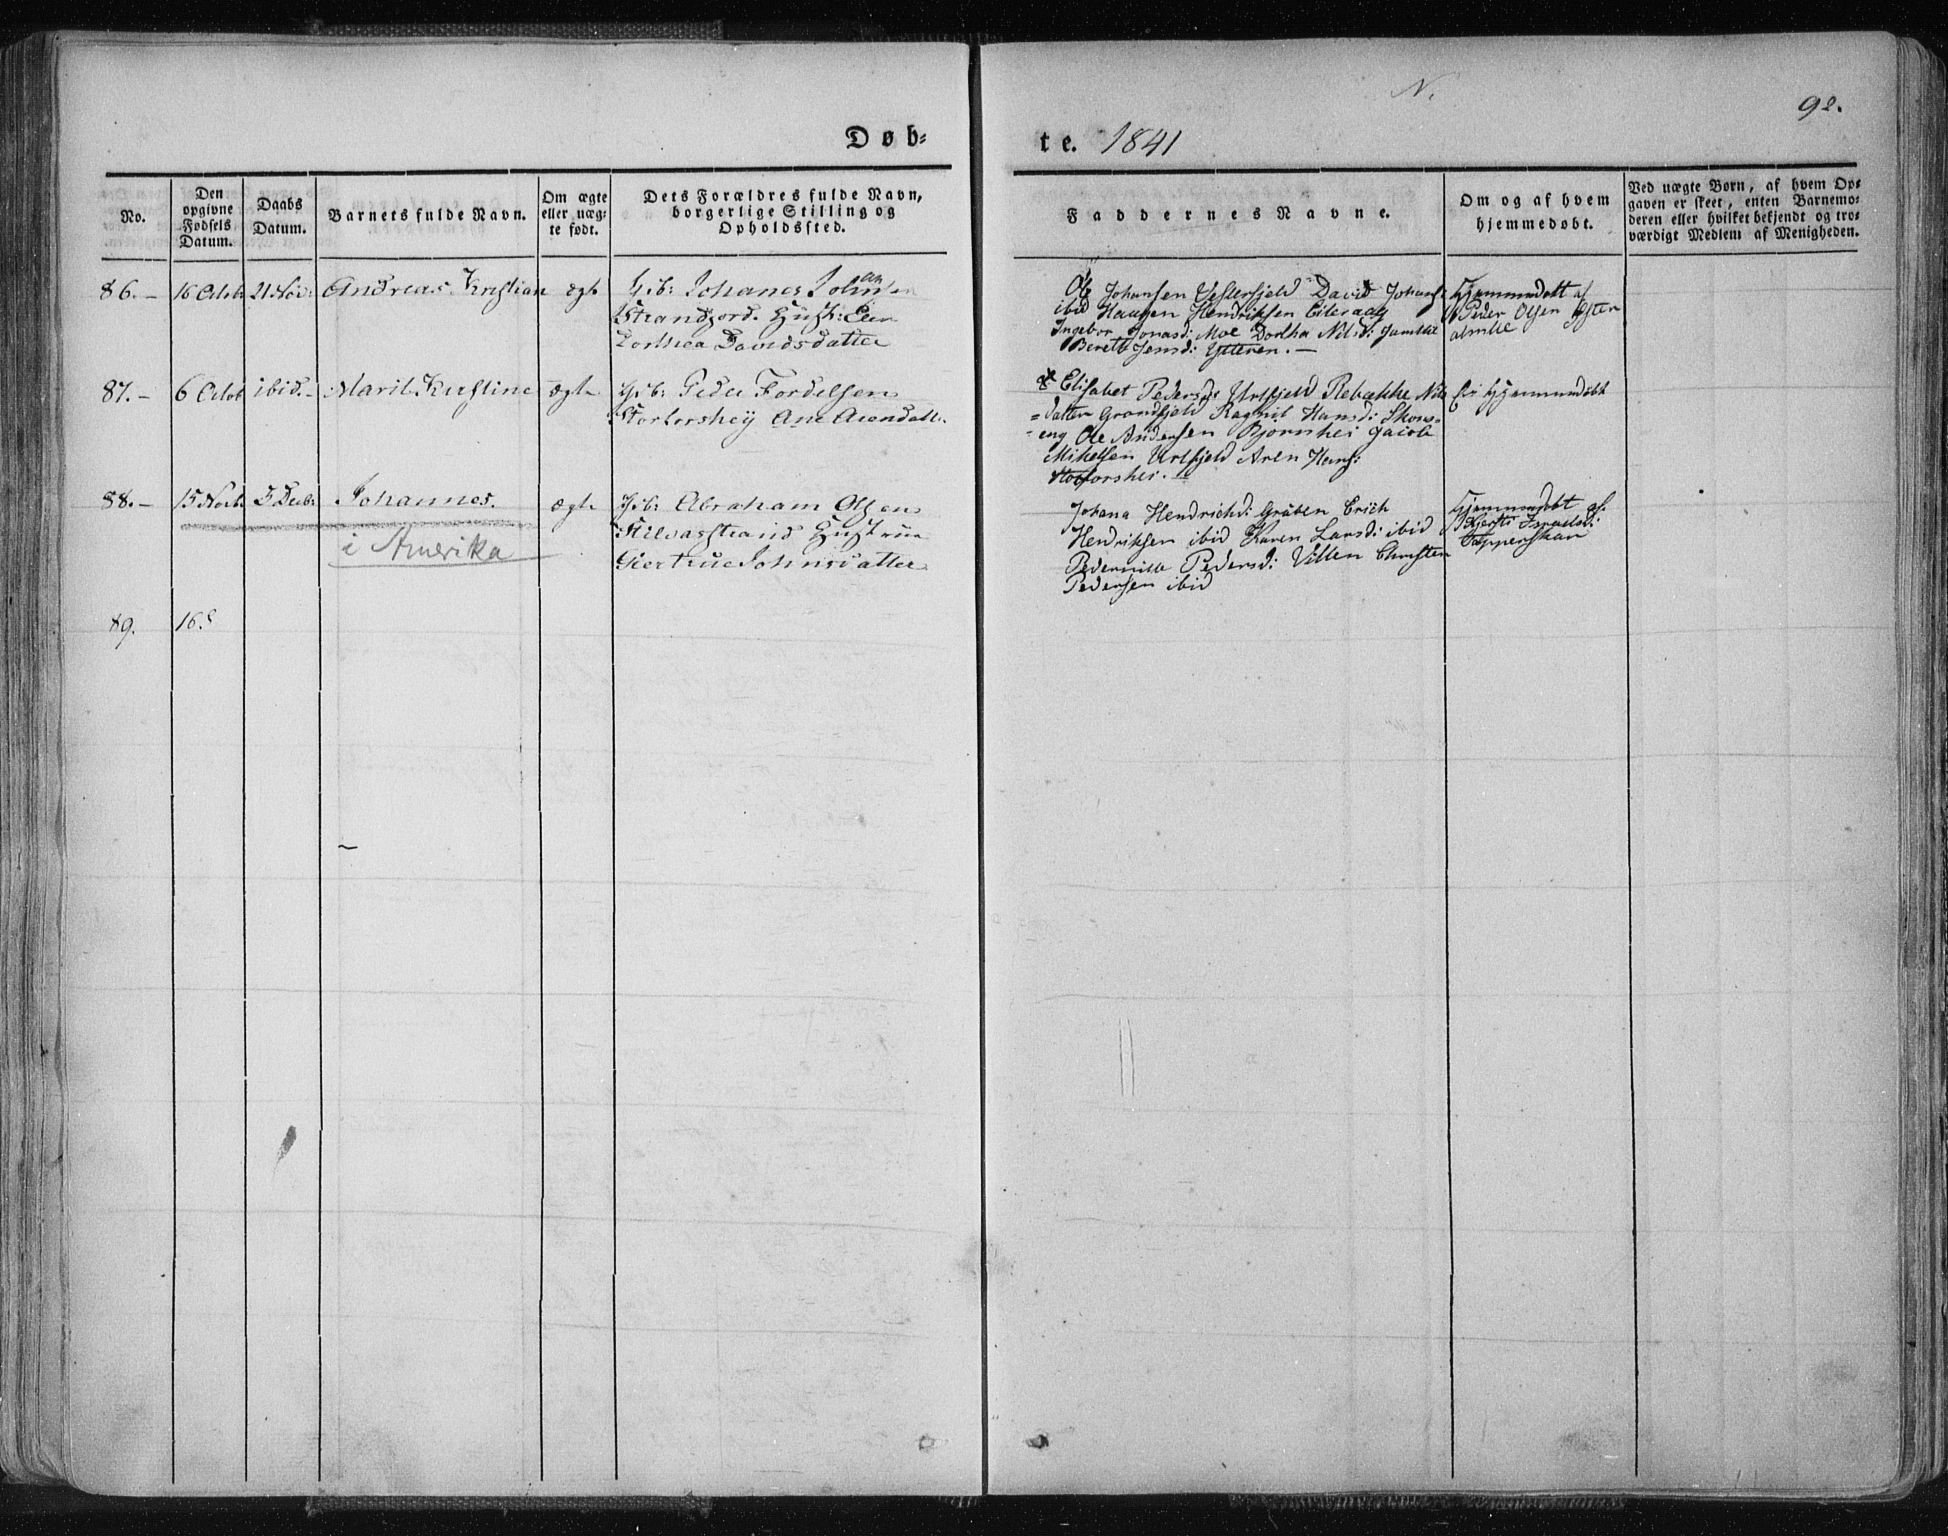 N.
92.
Døb-
te. 1841
No.
Den
opgivne
Fødsels
Datum.
Daabs
Datum.
Barnets fulde Navn.
Om ægte
eller uæg-
te født.
Dets Forældres fulde Navn,
borgerlige Stilling og
Opholdssted.
Faddernes Navne.
Om og af hvem
hjemmedøbt.
Ved uægte Børn, af hvem Op-
gaven er skeet, enten Barnemo-
deren eller hvilket bekjendt og tro-
værdigt Medlem af Menigheden.
86.- 16 Octob: 21 Nov: Andreas Kristian ægte
Gib: Johanes Johansen
Strandjord. Hust: Elen
Dorthea Davidsdatter
Ole Johansen Vesterfjeld David Johans:
ibid Haagen Hendriksen Eileraag
Ingebor Jonasd: Moe Dortha Nilsd:
Beret Jensd: Ytteren.-
Hjemmedøbt af
Peder Olsen Ytter
87.- 6 Octob ibid.- Marit Kirstine ægte
Gib: Peder Fordelsen
Storforshey Ane Arendatt:
Elisabet Pedersd: Urtfjeld Rebække Nils
-datter Grandfjeld Ragnil Hansd: Skons-
-eng Ole Andersen Bjørnhei Jacob
Mikelsen Urtfjeld Aren Hans:
Storforshei.-
Ei Hjemmedøbt
88.- 15 Novb: 5 Decb: Johannes. ægte
i Amerika
Gib: Abraham Olsen
Stilvasstrand Hustrue
Giertrue Johnsdatter
Johana Hendrichsd: Gruben Erich
Hendriksen ibid Karen Larsd: ibid
Pedernille Pedersd: Villen Christen
Pedersen ibid
Hjemmedøbt af:
Kjersti Israelsd:
Tapperskar
89. 16